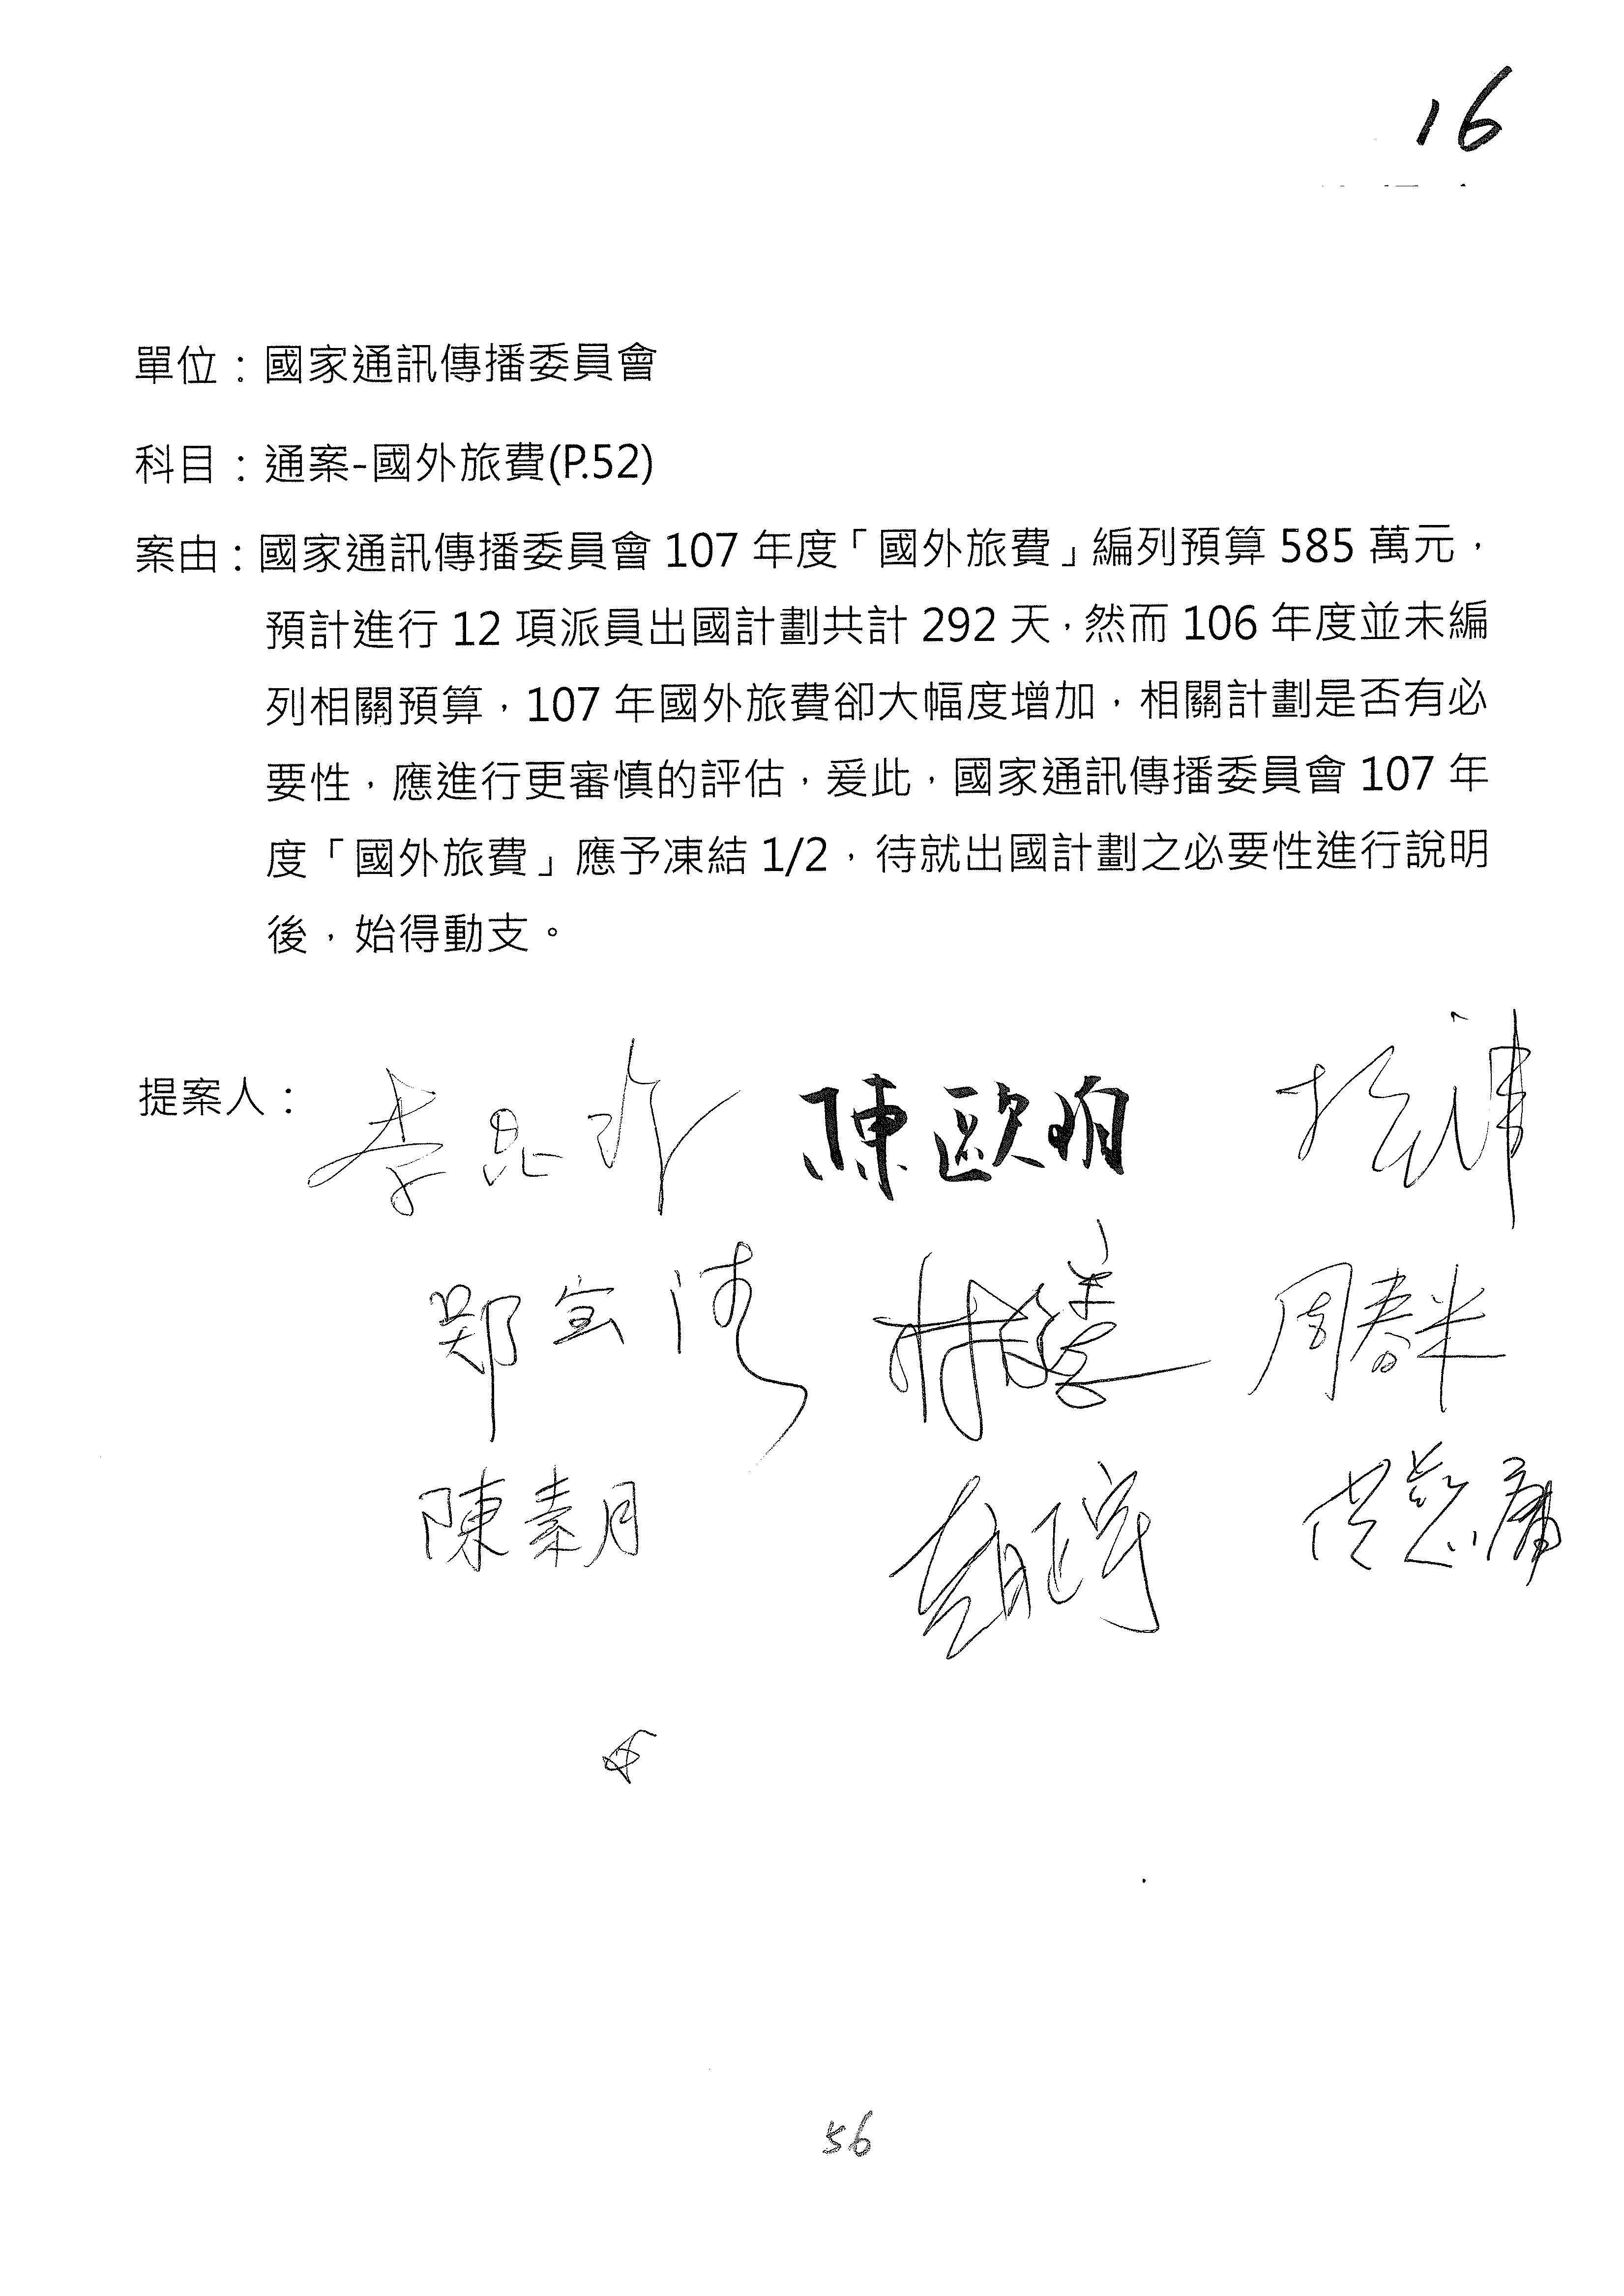 16
單位：國家通訊傳播委員會
科目：通案-國外旅費(P.52)
案由：國家通訊傳播委員會 107 年度「國外旅費」編列預算 585 萬元，
預計進行 12 項派員出國計劃共計 292 天，然而 106 年度並未編
列相關預算，107 年國外旅費卻大幅度增加，相關計劃是否有必
要性，應進行更審慎的評估，爰此，國家通訊傳播委員會 107 年
度「國外旅費」應予凍結 1/2，待就出國計劃之必要性進行說明
後，始得動支。
提案人： 李昆澤 陳歐珀
鄭宝清 林俊憲 周春米
陳素月 趙正宇
56